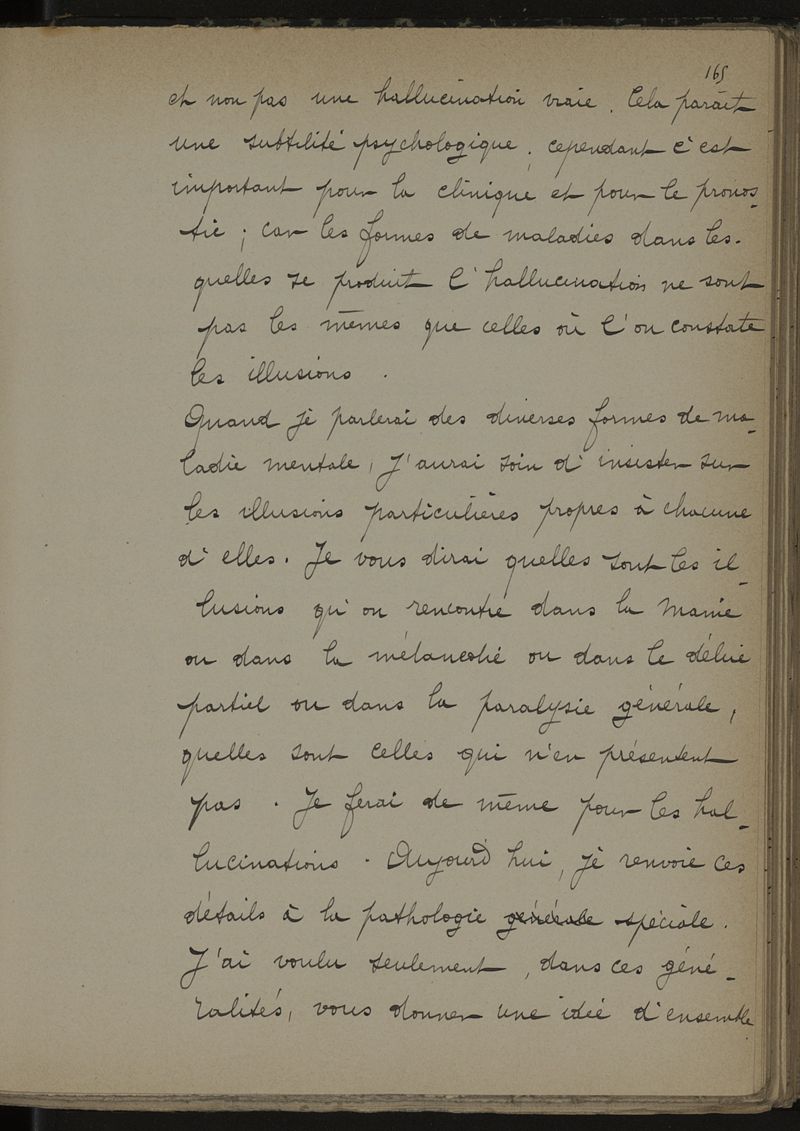 165
et non pas une hallucination vraie. Cela paraît
une subtilité psychologique ; cependant c'est
important pour la clinique et pour le pronos-
tic ; car les formes de maladies dans les-
quelles se produit l'hallucination ne sont
pas les mêmes que celles où l'on constate
les illusions .
Quand je parlerai des diverses formes de ma-
ladie mentale, j'aurai soin d'insister sur
les illusions particulières propres à chacune
d'elles. Je vous dirai quelles sont les il-
lusions qu'on rencontre dans la manie
ou dans la mélancolie ou dans le délire
partiel ou dans la paralysie générale,
quelles sont celles qui n'en présentent
pas . Je ferai de même pour les hal-
lucinations . Aujourd'hui, je renvoie ces
détails à la pathologie générale spéciale .
J'ai voulu seulement, dans ces géné-
ralités, vous donner une idée d'ensemble